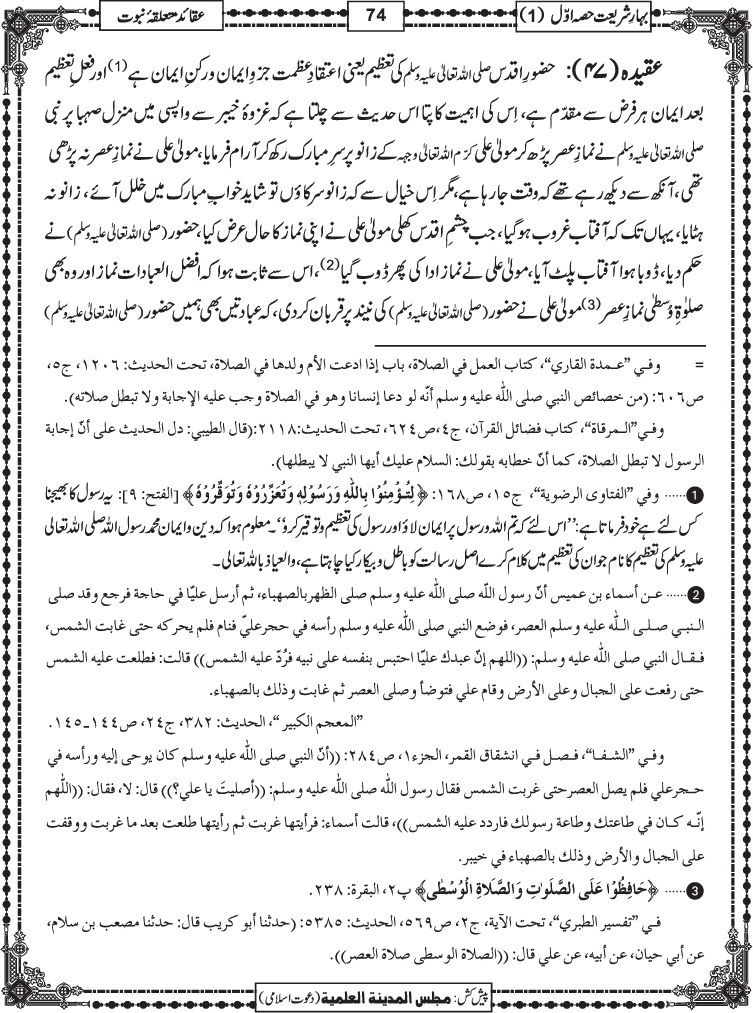 بہارِشریعت حصہ اوّل (1)
74
عقائدِ متعلقۂ نبوت
عقیدہ (۴۷): حضورِ اقدس صلی اللہ تعالیٰ علیہ وسلم کی تعظیم یعنی اعتقادِ عظمت جزوِ ایمان و رکنِ ایمان ہے (1) اور فعلِ تعظیم
بعد ایمان ہر فرض سے مقدّم ہے، اِس کی اہمیت کا پتا اس حدیث سے چلتا ہے کہ غزوۂ خیبر سے واپسی میں منزل صہبا پر نبی
صلی اللہ تعالیٰ علیہ وسلم نے نمازِ عصر پڑھ کر مولیٰ علی کرّم اللہ تعالیٰ وجہہ کے زانو پر سرِ مبارک رکھ کر آرام فرمایا، مولیٰ علی نے نمازِ عصر نہ پڑھی
تھی، آنکھ سے دیکھ رہے تھے کہ وقت جارہا ہے، مگر اِس خیال سے کہ زانو سرکاؤں تو شاید خوابِ مبارک میں خلل آئے، زانو نہ
ہٹایا، یہاں تک کہ آفتاب غروب ہوگیا، جب چشمِ اقدس کھلی مولیٰ علی نے اپنی نماز کا حال عرض کیا، حضور (صلی اللہ تعالیٰ علیہ وسلم) نے
حکم دیا، ڈوبا ہوا آفتاب پلٹ آیا، مولیٰ علی نے نماز ادا کی پھر ڈوب گیا (2)، اس سے ثابت ہوا کہ افضل العبادات نماز اور وہ بھی
صلوٰۃِ وُسطیٰ نمازِ عصر (3) مولیٰ علی نے حضور (صلی اللہ تعالیٰ علیہ وسلم) کی نیند پر قربان کردی، کہ عبادتیں بھی ہمیں حضور (صلی اللہ تعالیٰ علیہ وسلم)
= وفي ”عمدة القاري“، كتاب العمل في الصلاة، باب إذا ادعت الأم ولدها في الصلاة، تحت الحديث: ١٢٠٦، ج٥،
ص٦٠٦: (من خصائص النبي صلى الله عليه وسلم أنّه لو دعا إنسانا وهو في الصلاة وجب عليه الإجابة ولا تبطل صلاته).
وفي”المرقاة“، كتاب فضائل القرآن، ج٤،ص٦٢٤، تحت الحديث:٢١١٨:(قال الطيبي: دل الحديث على أنّ إجابة
الرسول لا تبطل الصلاة، كما أنّ خطابه بقولك: السلام عليك أيها النبي لا يبطلها).
1 ...... وفي ”الفتاوى الرضوية“، ج١٥، ص١٦٨: ﴿لِتُؤْمِنُوْا بِاللّٰهِ وَرَسُوْلِهٖ وَتُعَزِّرُوْهُ وَتُوَقِّرُوْهُ﴾ [الفتح: ٩]: یہ رسول کا بھیجنا
کس لئے ہے خود فرماتا ہے: ’’اس لئے کہ تم اللہ ورسول پر ایمان لاؤ اور رسول کی تعظیم وتوقیر کرو‘‘۔ معلوم ہوا کہ دین وایمان محمد رسول اللہ صلی اللہ تعالیٰ
علیہ وسلم کی تعظیم کا نام جو ان کی تعظیم میں کلام کرے اصل رسالت کو باطل وبیکار کیا چاہتا ہے، والعیاذ باللہ تعالیٰ۔
2 ...... عن أسماء بن عميس أنّ رسول الله صلى الله عليه وسلم صلى الظهربالصهباء، ثم أرسل عليّا في حاجة فرجع وقد صلى
النبي صلى الله عليه وسلم العصر، فوضع النبي صلى الله عليه وسلم رأسه في حجرعليّ فنام فلم يحركه حتى غابت الشمس،
فقال النبي صلى الله عليه وسلم: ((اللهم إنّ عبدك عليّا احتبس بنفسه على نبيه فرُدّ عليه الشمس)) قالت: فطلعت عليه الشمس
حتى رفعت على الجبال وعلى الأرض وقام علي فتوضأ وصلى العصر ثم غابت وذلك بالصهباء.
”المعجم الكبير“، الحديث: ٣٨٢، ج٢٤، ص١٤٤ـ١٤٥.
وفي ”الشفا“، فصل في انشقاق القمر، الجزء١، ص٢٨٤: ((أنّ النبي صلى الله عليه وسلم كان يوحى إليه ورأسه في
حجرعلي فلم يصل العصرحتى غربت الشمس فقال رسول الله صلى الله عليه وسلم: ((أصليتَ يا علي؟)) قال: لا، فقال: ((اللّٰهم
إنّه كان في طاعتك وطاعة رسولك فاردد عليه الشمس))، قالت أسماء: فرأيتها غربت ثم رأيتها طلعت بعد ما غربت ووقفت
على الجبال والأرض وذلك بالصهباء في خيبر.
3 ...... ﴿حَافِظُوْا عَلَى الصَّلَوٰتِ وَالصَّلَاةِ الْوُسْطٰى﴾ پ٢، البقرة: ٢٣٨.
في ”تفسير الطبري“، تحت الآية، ج٢، ص٥٦٩، الحديث: ٥٣٨٥: (حدثنا أبو كريب قال: حدثنا مصعب بن سلام،
عن أبي حيان، عن أبيه، عن علي قال: ((الصلاة الوسطى صلاة العصر)).
پیش کش: مجلس المدينة العلمية (دعوت اسلامی)